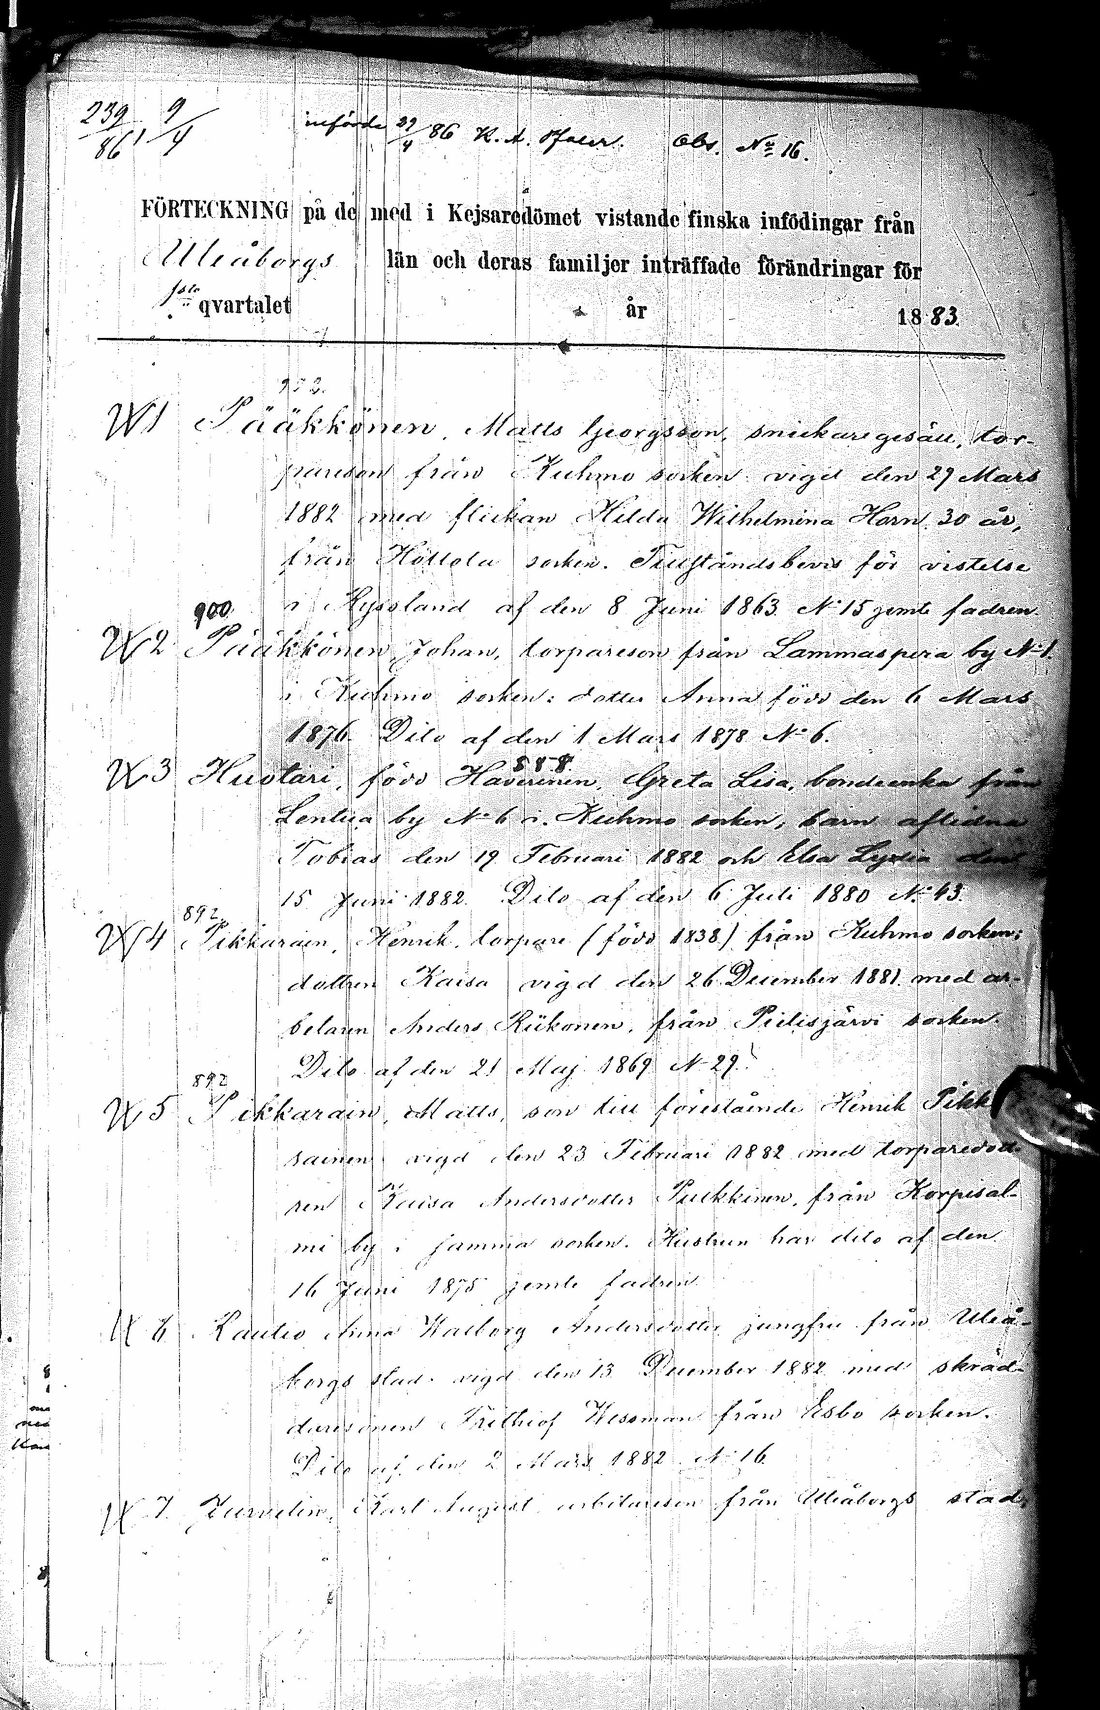 239/86 9/4
införde 29/4 86 K. A. Obs. No 16.
FÖRTECKNING på de med i Kejsaredömet vistande finska infödingar från
Uleåborgs län och deras familjer inträffade förändringar för
1sta qvartalet år 1883.
952.
1 Pääkkönen, Matts Georgsson, snickaregesäll, tor-
pareson från Kuhmo socken vigd den 29 Mars
1882 med flickan Hilda Wilhelmina Horn, 30 år,
från Hollola socken. Tillståndsbevis för vistelse
i Ryssland af den 8 Juni 1863 No 15 jemte fadren.
900
2 Pääkkönen Johan, torpareson från Lammaspera by No 1.
i Kuhmo socken: dotter Anna född den 6 Mars
1876. Dito af den 1 Mars 1878 No 6.
888
3 Huotari, född Haverinen, Greta Lisa, bondeenka från
Lentua by No 6 i Kuhmo socken; barn aflidna
Tobias den 19 Februari 1882 och Elsa Lydia den
15 Juni 1882. Dito af den 6 Juli 1880 No 43.
892
4 Pikkarain, Henrik, torpare (född 1838) från Kuhmo socken;
dottren Kaisa vigd den 26 December 1881 med ar-
betaren Anders Riikonen, från Pielisjärvi socken.
Dito af den 21 Maj 1869 No 29.
892
5 Pikkarain, Matts, son till förestående Henrik Pikk
rainen vigd den 23 Februari 1882 med torparedott-
ren Kaisa Andersdotter Pulkkinen, från Korpisal-
mi by i samma socken. Hustrun har dito af den
16 Juni 1875 jemte fadren.
6 Rautio Anna Walborg Andersdotter jungfru från Uleå-
borgs stad. vigd den 13 December 1882 med skräd-
daresonen Frithiof Wessman från Esbo socken.
Dito af den 2 Mars 1882 No 16
7 Jurvelin, Karl August arbetareson från Uleåborgs stad,